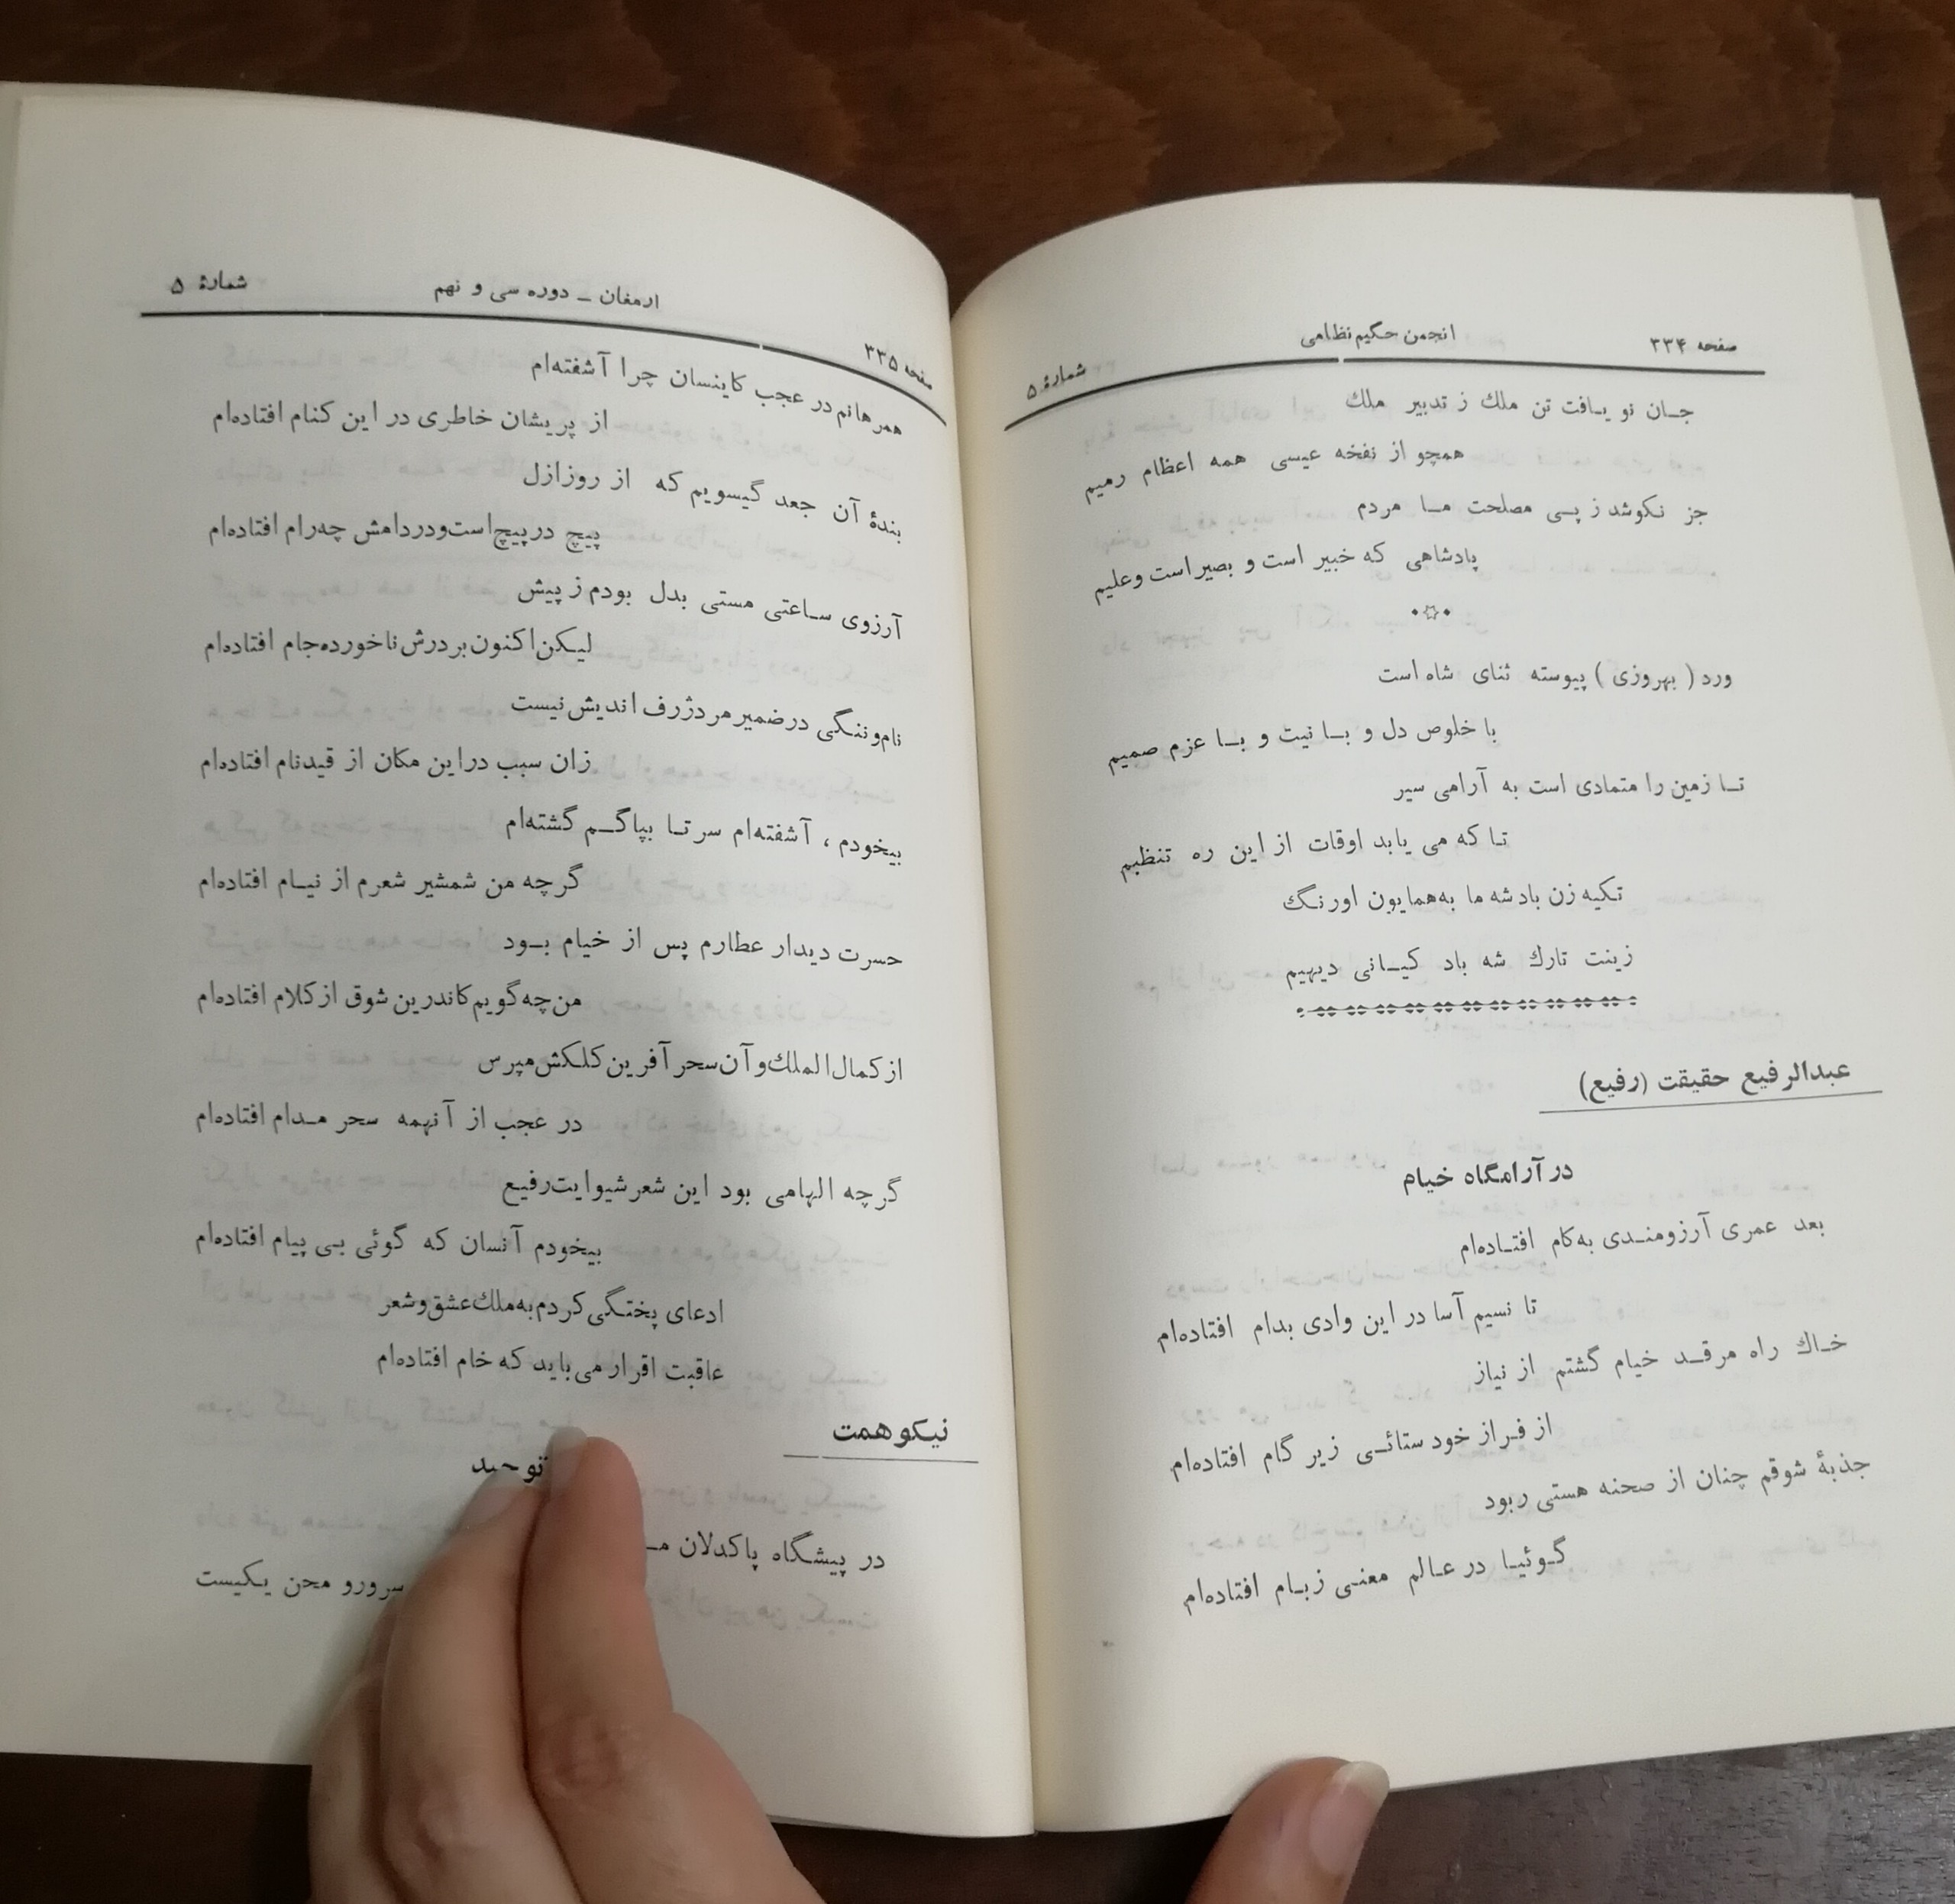 صفحه ۳۳۴ انجمن حکیم نظامی شمارهٔ ۵
جـان نو یـافت تن ملك ز تدبیر ملك
همچو از نفخه عیسی همه اعظام رمیم
جز نکوشد ز پـی مصلحت مـا مردم
پادشاهی که خبیر است و بصیر است وعلیم
ورد ( بهروزی ) پیوسته ثنای شاه است
با خلوص دل و بـا نیت و بـا عزم صمیم
تـا زمین را متمادی است به آرامی سیر
تـا که می یابد اوقات از این ره تنظیم
تکیه زن باد شه ما به‌همایون اورنگ
زینت تارك شه باد کیـانی دیهیم
عبدالرفیع حقیقت (رفیع)
در آرامگاه خیام
بعد عمری آرزومنـدی به‌کام افتـاده‌ام
تا نسیم آسا در این وادی بدام افتاده‌ام
خـاك راه مرقـد خیام گشتم از نیاز
از فـراز خود ستائـی زیر گام افتاده‌ام
جذبهٔ شوقم چنان از صحنه هستی ربود
گـوئیـا در عـالم معنـی زبـام افتاده‌ام
شمارهٔ ۵ ارمغان ـ دوره سی و نهم صفحه ۳۳۵
همرهانم در عجب کاینسان چرا آشفته‌ام
از پریشان خاطری در این کنام افتاده‌ام
بندهٔ آن جعد گیسویم که از روز ازل
پیچ در پیچ است‌ودردامش چه‌رام افتاده‌ام
آرزوی سـاعتی مستی بدل بودم ز پیش
لیـکن اکنون بر درش ناخورده‌جام افتاده‌ام
نام‌وننگی در ضمیر مرد ژرف اندیش نیست
زان سبب دراین مکان از قیدنام افتاده‌ام
بیخودم ، آشفته‌ام سر تـا بپا گـم گشته‌ام
گر چه من شمشیر شعرم از نیـام افتاده‌ام
حسرت دیدار عطارم پس از خیام بـود
من‌چه‌گویم‌کاندرین شوق ازکلام افتاده‌ام
از کمال‌الملك‌و آن‌سحر آفرین کلکش مپرس
در عجب از آنهمه سحر مـدام افتاده‌ام
گر چه الهامی بود این شعر شیوایت‌رفیع
بیخودم آنسان که گوئی بـی پیام افتاده‌ام
ادعای پختـگی کردم به‌ملك‌عشق‌وشعر
عاقبت اقرار می‌باید که خام افتاده‌ام
نیـکو همت
توحید
در پیشـگاه پاکدلان
سرورو محن یـکیست